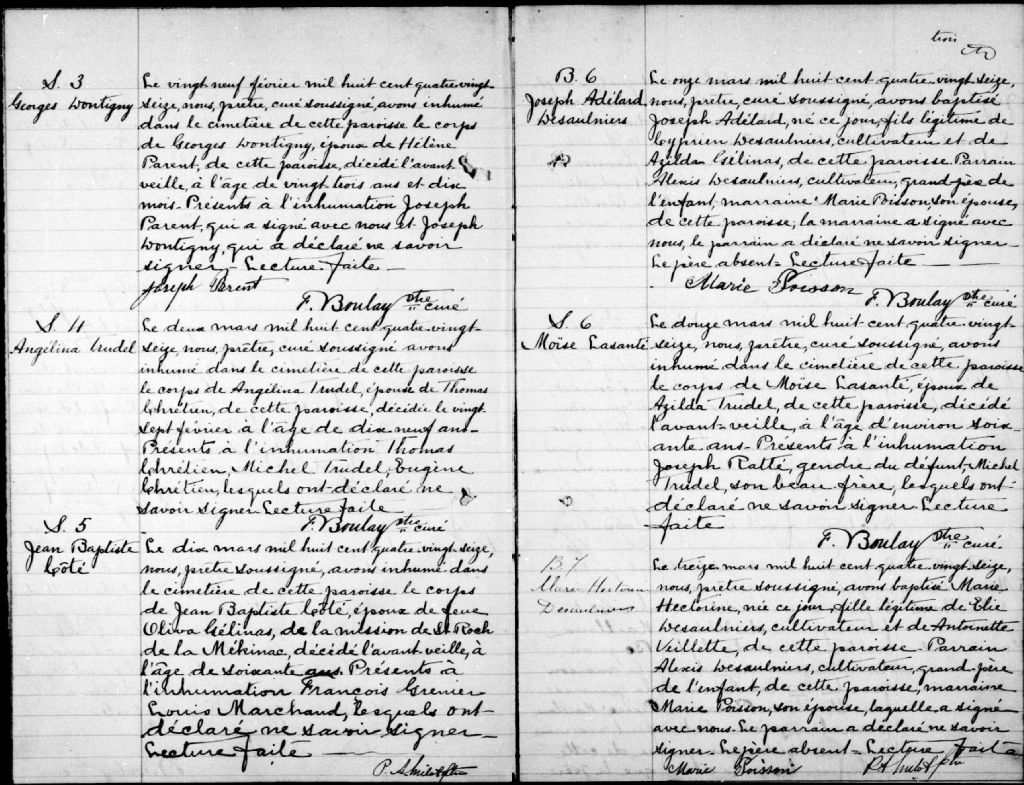 S. 3
Georges Dontigny
Le vingt neuf février mil huit cent quatre-vingt-
seize, nous, prêtre, curé soussigné, avons inhumé
dans le cimetière de cette paroisse le corps
de Georges Dontigny, époux de Hélène
Parent, de cette paroisse, décédé l'avant-
veille, à l'âge de vingt trois ans et dix
mois. Présents à l'inhumation Joseph
Parent, qui a signé avec nous et Joseph
Dontigny, qui a déclaré ne savoir
signer. Lecture faite
Joseph Parent
F. Boulay ptre curé
S. 4
Angélina Trudel
Le deux mars mil huit cent quatre-vingt-
seize, nous, prêtre, curé soussigné avons
inhumé dans le cimetière de cette paroisse
le corps de Angélina Trudel, épouse de Thomas
Chrétien, de cette paroisse, décédée le vingt
sept février à l'âge de dix neuf ans-
Présents à l'inhumation Thomas
Chrétien, Michel Trudel, Eugène
Chrétien, lesquels ont déclaré ne
savoir signer Lecture faite
F. Boulay ptre curé
S. 5
Jean Baptiste
Côté
Le dix mars mil huit cent quatre-vingt-seize,
nous, prêtre soussigné, avons inhumé dans
le cimetière de cette paroisse le corps
de Jean Baptiste Côté, époux de feue
Oliva Gélinas, de la mission de St Roch
de la Mékinac, décédé l'avant-veille, à
l'âge de soixante ans. Présents à
l'inhumation François Grenier
Louis Marchand, lesquels ont-
déclaré ne savoir signer-
Lecture faite
trois
B. 6
Joseph Adélard
Desaulniers
Le onze mars mil huit cent quatre-vingt-seize,
nous, prêtre, curé soussigné, avons baptisé
Joseph Adélard, né ce jour, fils légitime de
Cyprien Desaulniers, cultivateur et de
Azilda Gélinas, de cette paroisse Parrain
Alexis Desaulniers, cultivateur, grand-père de
l'enfant, marraine Marie Poisson, son épouse,
de cette paroisse; la marraine a signé avec
nous, le parrain a déclaré ne savoir signer-
Le père absent- Lecture faite
Marie Poisson
F. Boulay ptre curé
S. 6
Moïse Lasanté
Le douze mars mil huit cent quatre-vingt-
seize, nous, prêtre, curé soussigné, avons
inhumé dans le cimetière de cette paroisse
le corps de Moïse Lasanté, époux de
Azilda Trudel, de cette paroisse, décédé
l'avant-veille, à l'âge d'environ soix-
ante ans- Présents à l'inhumation
Joseph Ratté, gendre du défunt, Michel
Trudel, son beau frère, lesquels ont-
déclaré ne savoir signer- Lecture
faite
F. Boulay ptre curé
B 7
Marie
Desaulniers
Le treize mars mil huit cent quatre-vingt-seize,
nous, prêtre soussigné, avons baptisé Marie
Hectorine, née ce jour, fille légitime de Elie
Desaulniers, cultivateur et de Antoinette
Veillette, de cette paroisse- Parrain
Alexis Desaulniers, cultivateur, grand père
de l'enfant, de cette paroisse, marraine
Marie Poisson, son épouse, laquelle a signé
avec nous- Le parrain a déclaré ne savoir
signer- Le père absent- Lecture faite
Marie Poisson